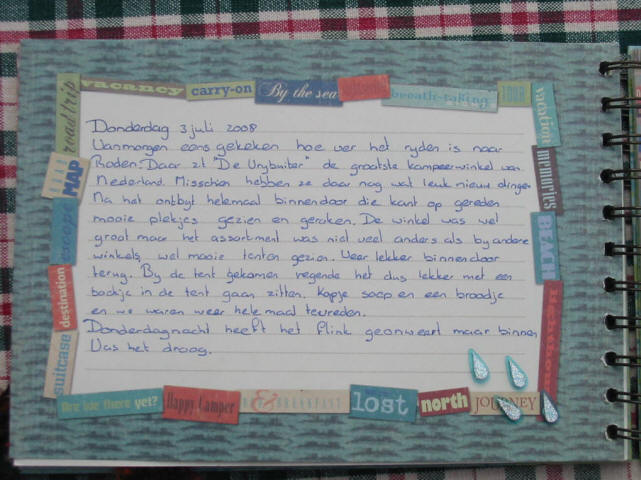 roadtrip
vacancy
carry-on
By the sea
breath-taking
TOUR
vacation
MAP
memories
BEACH
destination
suitcase
Donderdag 3 juli 2008
Vanmorgen eens gekeken hoe ver het ryden is naar
Roden. Daar zit "De Vrybuiter" de grootste kampeerwinkel van
Nederland. Misschien hebben ze daar nog wat leuk nieuw dingen
Na het ontbyt helemaal binnendoor die kant op gereden
mooie plekjes gezien en geraken. De winkel was wel
groot maar het assortiment was niet veel anders als by andere
winkels, wel mooie tenten gezien. Weer lekker binnendoor
terug. By de tent gekomen regende het dus lekker met een
boekje in de tent gaan zitten. Kopje soep en een broodje
en we waren weer helemaal tevreden.
Donderdagnacht heeft het flink geonweert maar binnen
Was het droog.
Are we there yet?
Happy Camper
BED & BREAKFAST
lost
north
JOURNEY